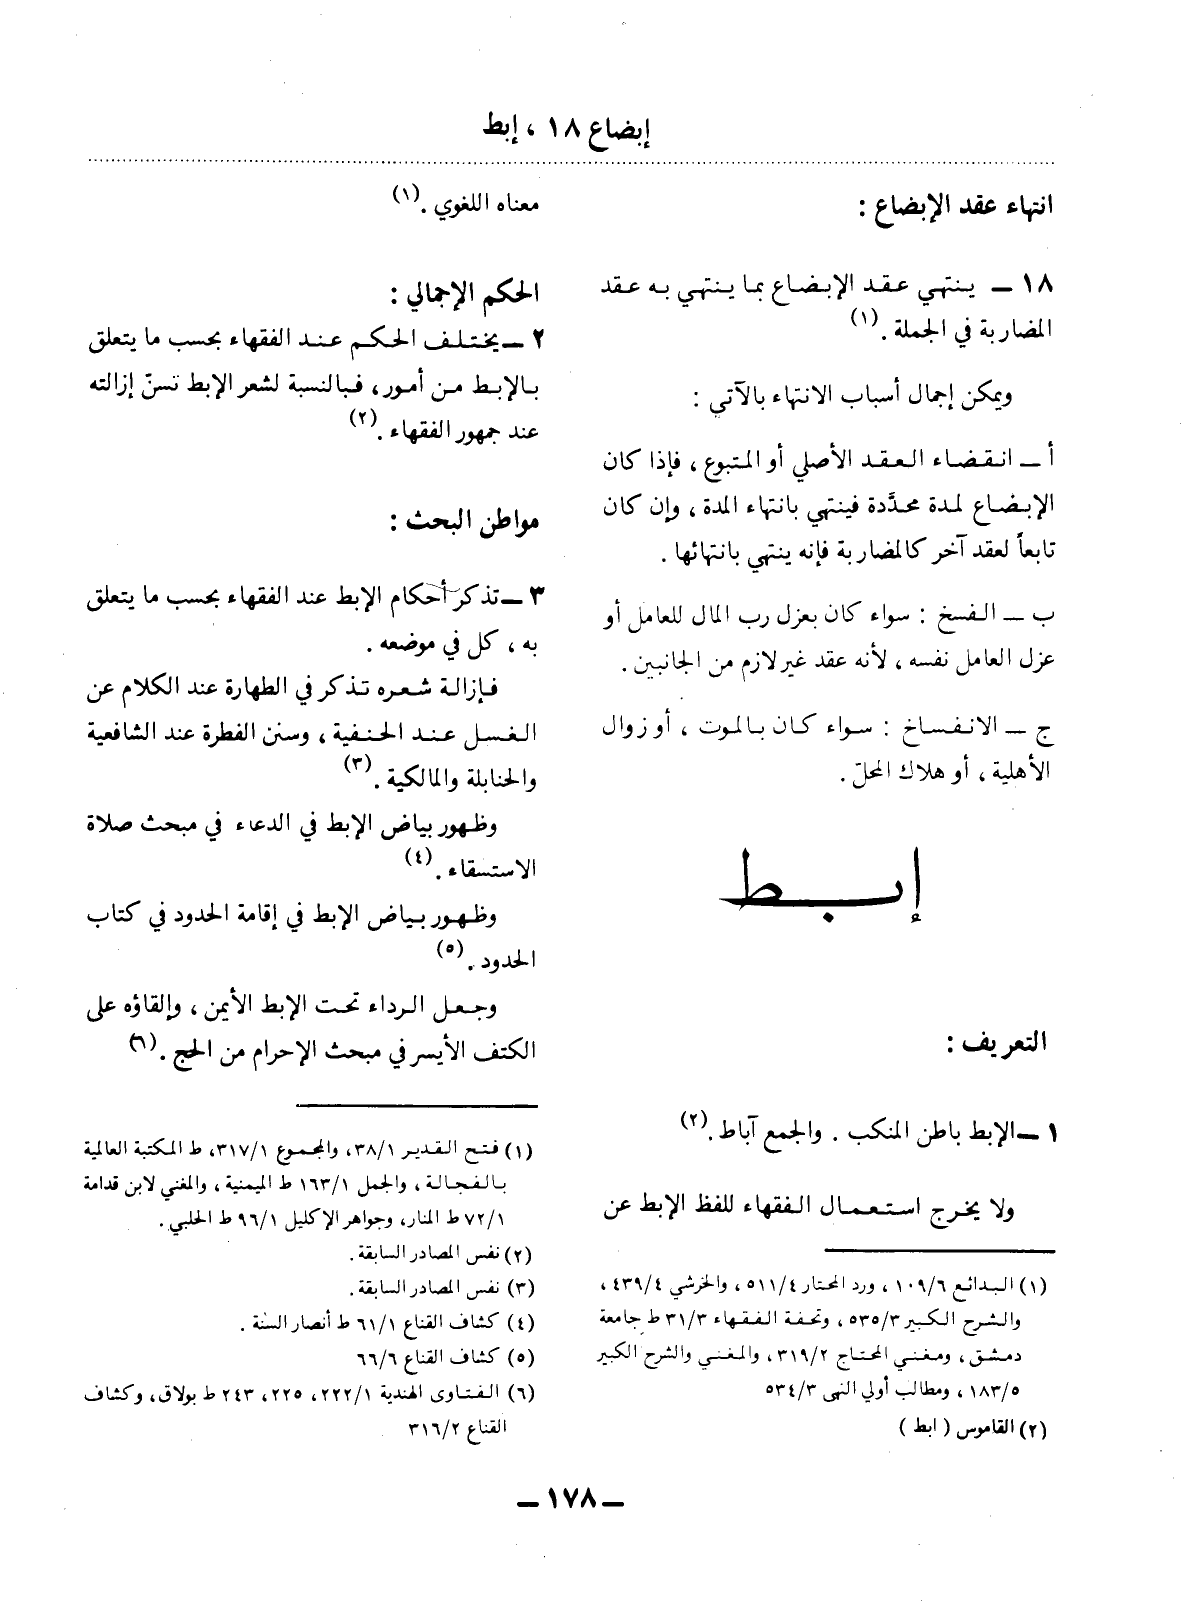 إبضاع ١٨ ، إبط
انتهاء عقد الإبضاع :
١٨ ــ ينتهي عقد الإبضاع بما ينتهي به عقد
المضاربة في الجملة . (١)
ويمكن إجمال أسباب الانتهاء بالآتي :
أ ــ انقضاء العقد الأصلي أو المتبوع ، فإذا كان
الإبضاع لمدة محدَّدة فينتهي بانتهاء المدة ، وإن كان
تابعاً لعقد آخر كالمضاربة فإنه ينتهي بانتهائها .
ب ــ الفسخ : سواء كان بعزل رب المال للعامل أو
عزل العامل نفسه ، لأنه عقد غير لازم من الجانبين .
ج ــ الانفساخ : سواء كان بالموت ، أو زوال
الأهلية ، أو هلاك المحلّ .
إبط
التعريف :
١ ــ الإبط باطن المنكب . والجمع آباط . (٢)
ولا يخرج استعمال الفقهاء للفظ الإبط عن
(١) البدائع ١٠٩/٦ ، ورد المحتار ٥١١/٤ ، والخرشي ٤٣٩/٤ ،
والشرح الكبير ٥٣٥/٣ ، وتحفة الفقهاء ٣١/٣ ط جامعة
دمشق ، ومغني المحتاج ٣١٩/٢ ، والمغني والشرح الكبير
١٨٣/٥ ، ومطالب أولي النهى ٥٣٤/٣
(٢) القاموس ( ابط )
معناه اللغوي . (١)
الحكم الإجمالي :
٢ ــ يختلف الحكم عند الفقهاء بحسب ما يتعلق
بالإبط من أمور ، فبالنسبة لشعر الإبط تسنّ إزالته
عند جمهور الفقهاء . (٢)
مواطن البحث :
٣ ــ تذكر أحكام الإبط عند الفقهاء بحسب ما يتعلق
به ، كل في موضعه .
فإزالة شعره تذكر في الطهارة عند الكلام عن
الغسل عند الحنفية ، وسنن الفطرة عند الشافعية
والحنابلة والمالكية . (٣)
وظهور بياض الإبط في الدعاء في مبحث صلاة
الاستسقاء . (٤)
وظهور بياض الإبط في إقامة الحدود في كتاب
الحدود . (٥)
وجعل الرداء تحت الإبط الأيمن ، وإلقاؤه على
الكتف الأيسر في مبحث الإحرام من الحج . (٦)
(١) فتح القدير ٣٨/١، والمجموع ٣١٧/١، ط المكتبة العالمية
بالفجالة ، والجمل ١٦٣/١ ط الميمنية ، والمغني لابن قدامة
٧٢/١ ط المنار، وجواهر الإكليل ٩٦/١ ط الحلبي .
(٢) نفس المصادر السابقة .
(٣) نفس المصادر السابقة .
(٤) كشاف القناع ٦١/١ ط أنصار السنة .
(٥) كشاف القناع ٦٦/٦
(٦) الفتاوى الهندية ٢٢٢/١، ٢٢٥، ٢٤٣ ط بولاق، وكشاف
القناع ٣١٦/٢
ــ ١٧٨ ــ